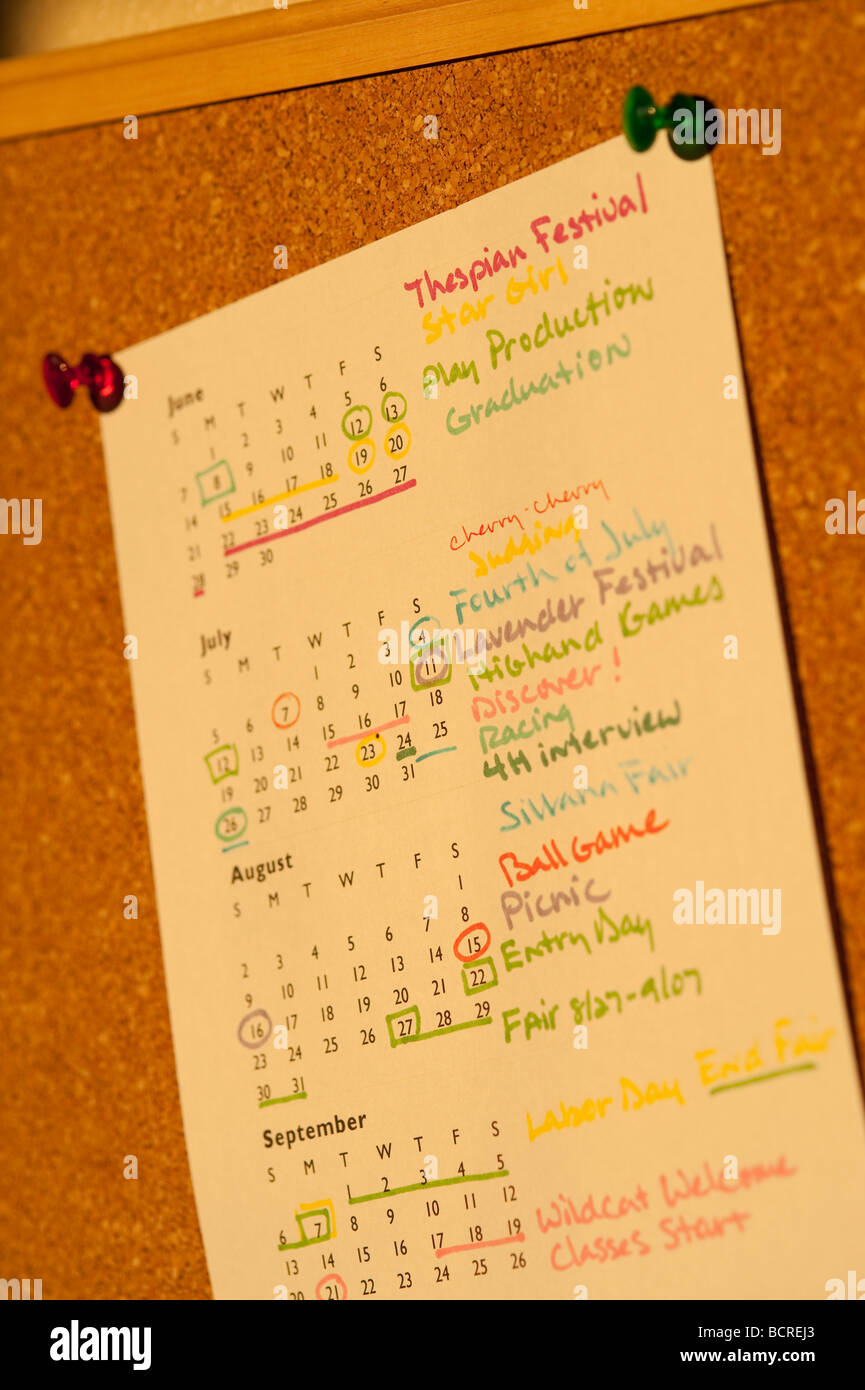 Thespian Festival
Star Girl
Play Production
Graduation
June
S M T W T F S
1 2 3 4 5 6
7 8 9 10 11 12 13
14 15 16 17 18 19 20
21 22 23 24 25 26 27
28 29 30
cherry-cherry
Judging
Fourth of July
Lavender Festival
Highand Games
Discover!
Racing
4H interview
Silvana Fair
July
S M T W T F S
1 2 3 4
5 6 7 8 9 10 11
12 13 14 15 16 17 18
19 20 21 22 23 24 25
26 27 28 29 30 31
Ball Game
Picnic
Entry Day
Fair 8/27-9/07
August
S M T W T F S
1
2 3 4 5 6 7 8
9 10 11 12 13 14 15
16 17 18 19 20 21 22
23 24 25 26 27 28 29
30 31
Labor Day End Fair
September
S M T W T F S
1 2 3 4 5
6 7 8 9 10 11 12
13 14 15 16 17 18 19
20 21 22 23 24 25 26
Wildcat Welcome
Classes Start
alamy
Image ID: BCREJ3
www.alamy.com